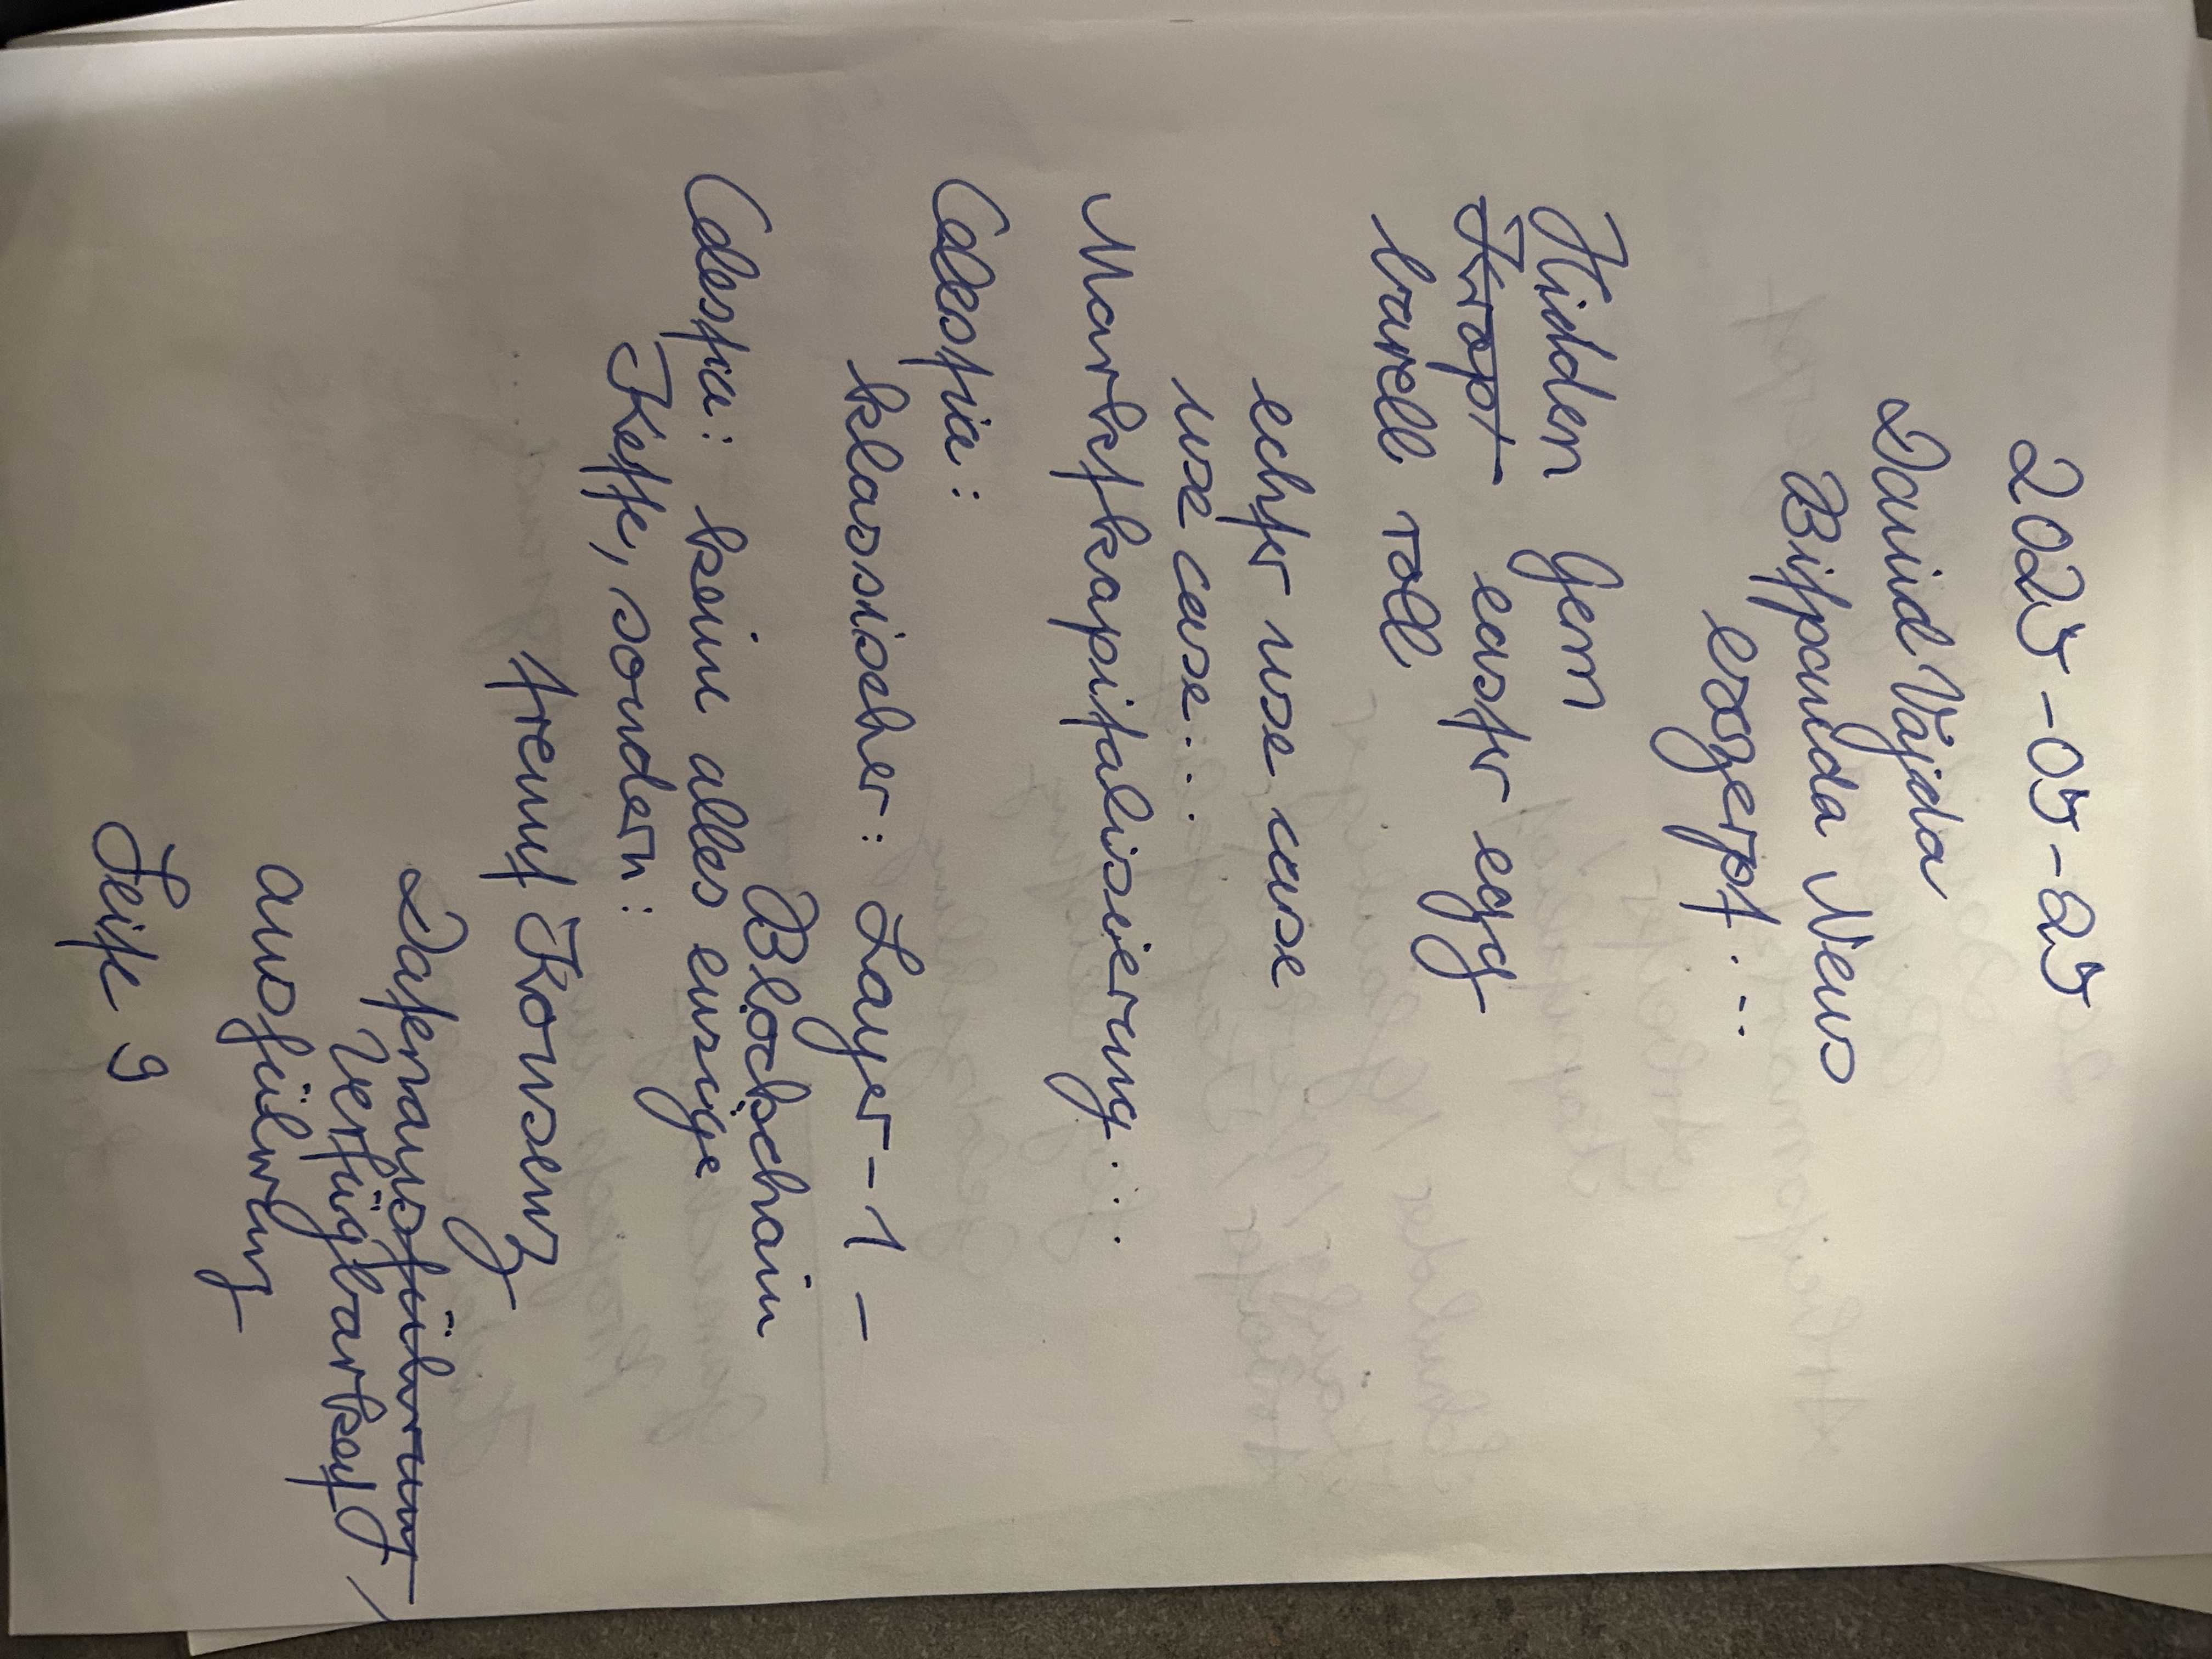 2025-05-25
David Vajda
Bitpanda News
exzerpt...
Hidden Gem
Kropt easter egg
barell roll
echter use case
use case...
Marktkapitalisierung...
Celestia:
klassischer: Layer-1-
Blockchain
Celestia: keine alles einzige
Kette, sondern:
trennt Konsenz
Datenausführung
Verfügbarkeit,
ausführung
Seite 9